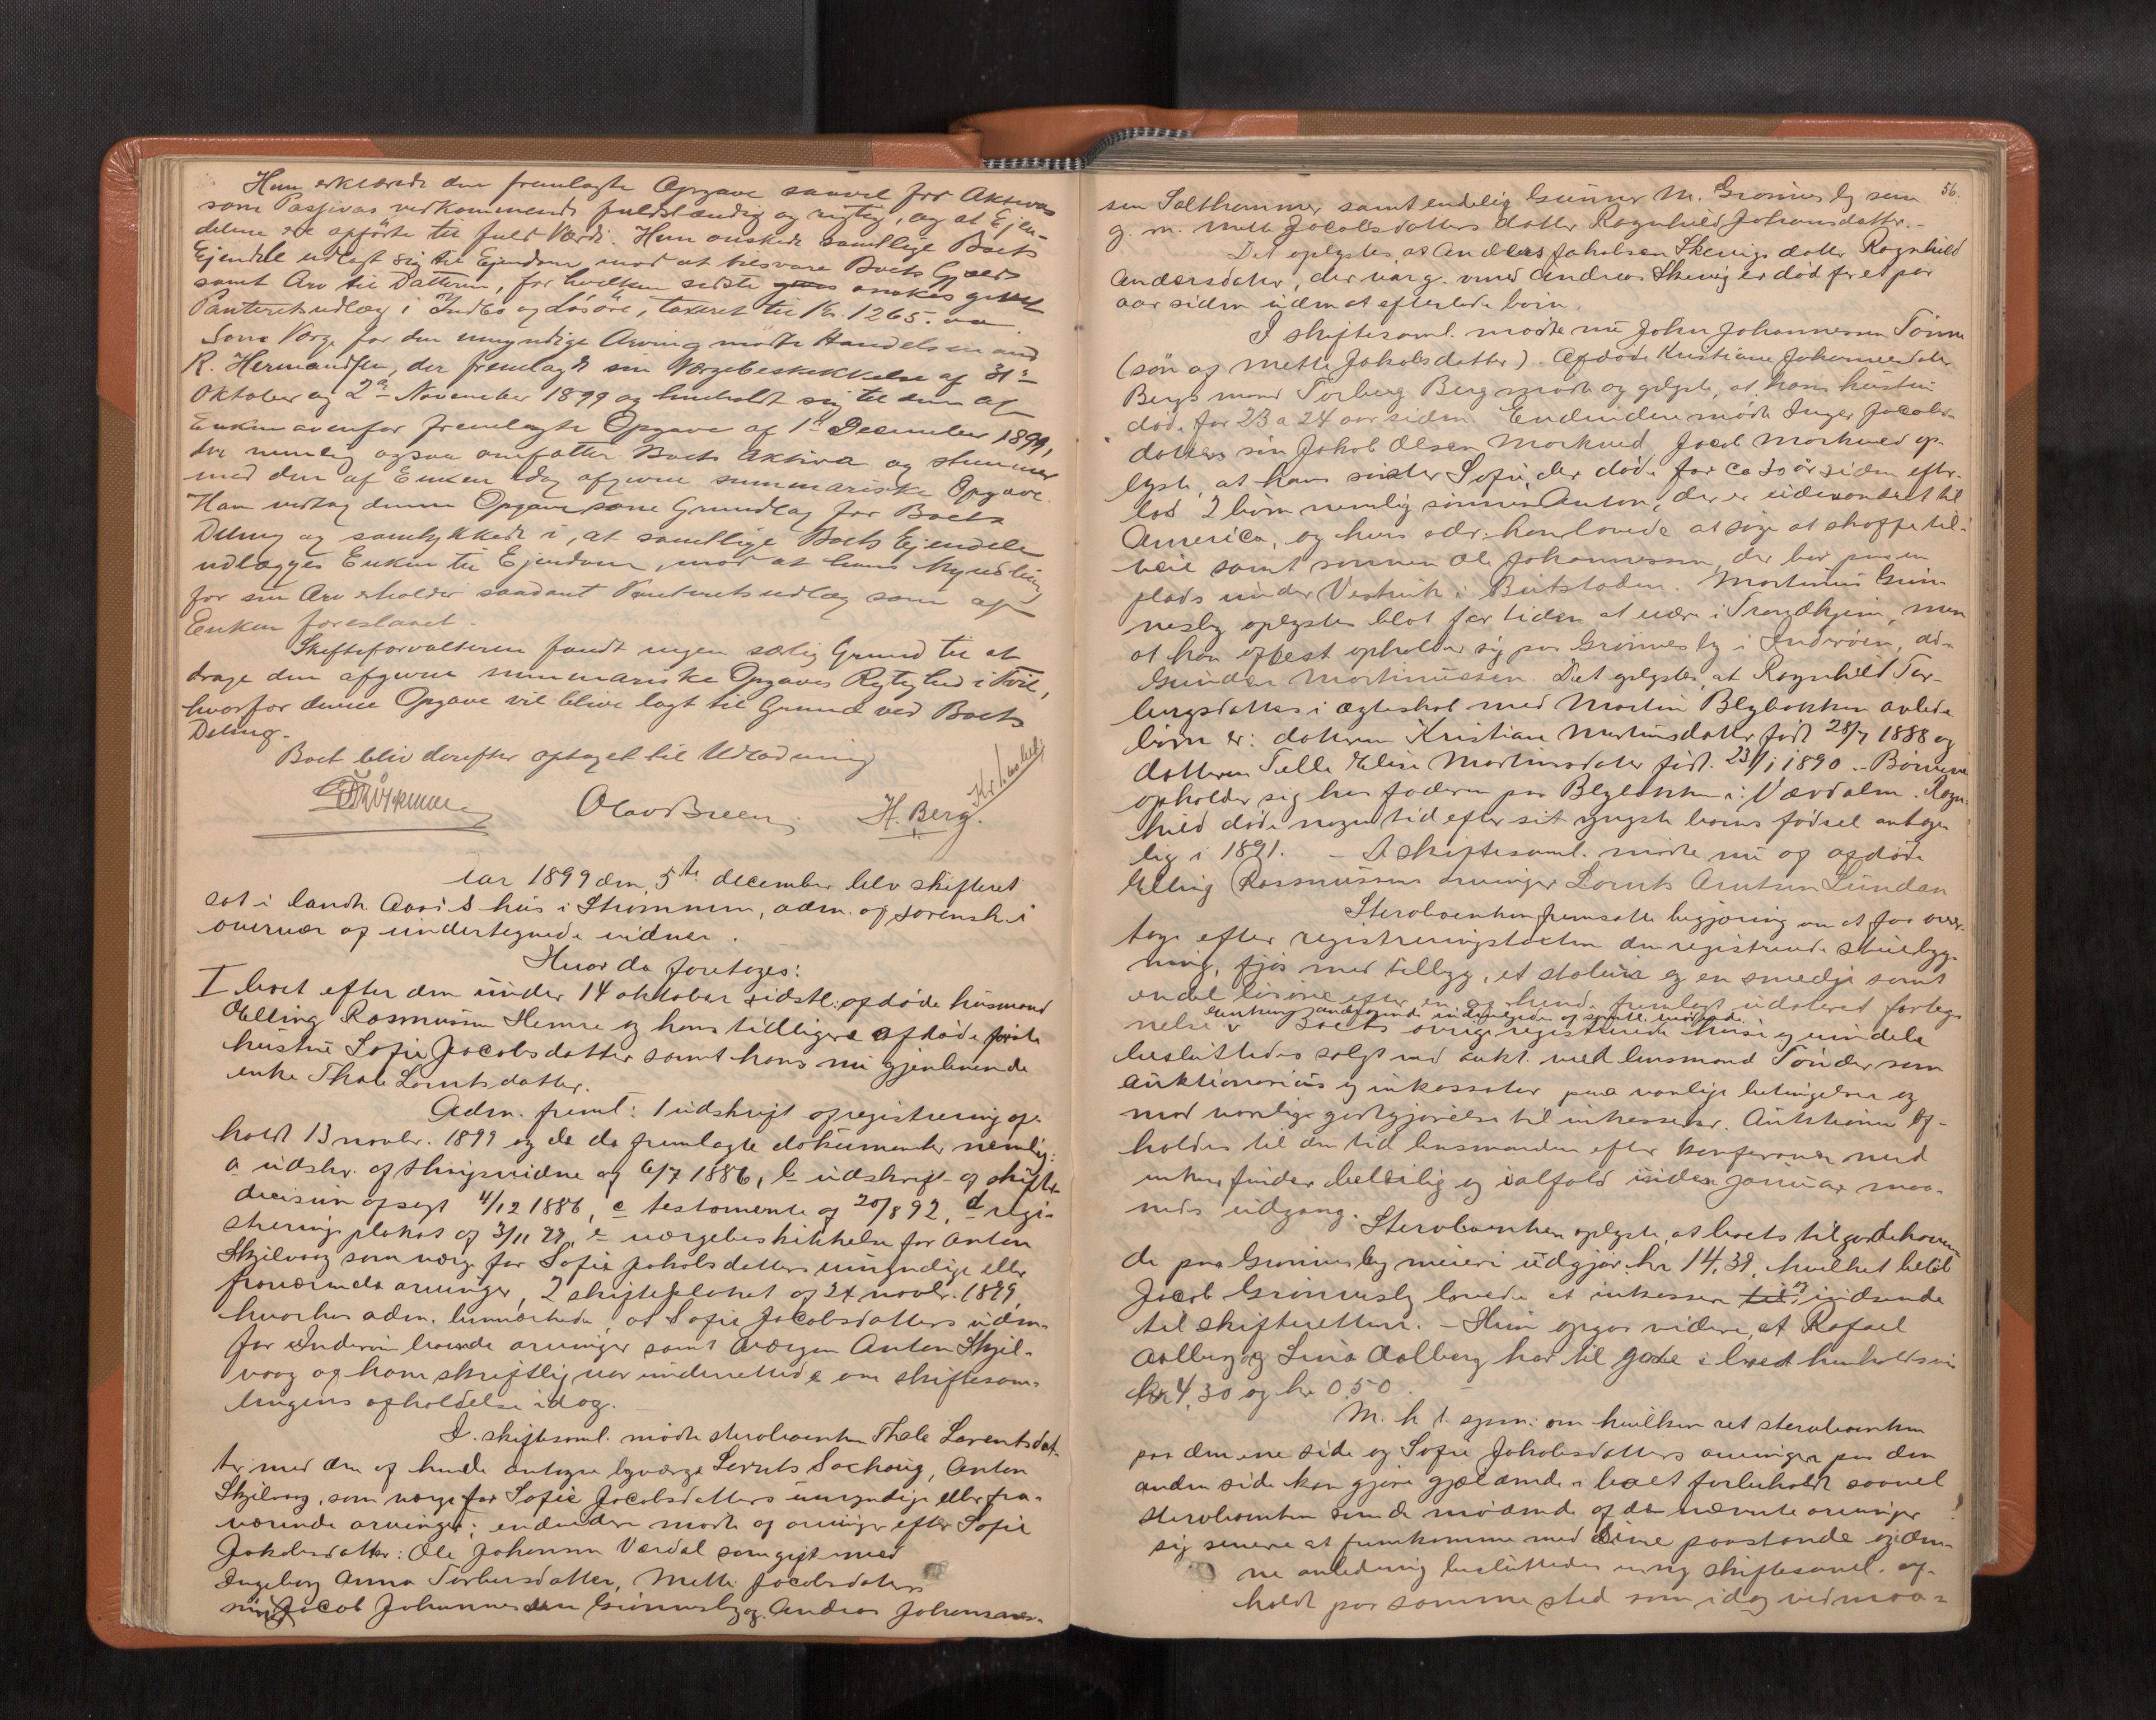 Hun erklærede den fremlagte Opgave saavel for Aktivas
som Passivas vedkommende fuldstændig og rigtig, og at Ejen-
delene ere opførte til fuld Værdi. Hun ønskede samtlige Boets
Ejendele udlagt sig til Ejendom mod at besvare Boets Gjæld
samt Arv til Datteren, for hvilken sidste ønskes givet
Panteretsudlæg i Indbo og Løsøre, taxeret til Kr. 1265.
Som Værge for den umyndige Arving mødte Handelsmand
R. Hermandsen, der fremlagde sin Værgebeskikkelse af 31te
Oktober og 2den November 1899 og henholdt sig til den af
Enken ovenfor fremlagte Opgave af 1ste December 1899,
der nemlig ogsaa omfatter Boets Aktiva og stemmer
med den af Enken idag afgivne summariske Opgave.
Han vedtog denne Opgave som Grundlag for Boets
Deling og samtykkede i, at samtlige Boets Ejendele
udlægges Enken til Ejendom, mod at hans Myndling
for sin Arv erholder saadant Panteretsudlæg som af
Enken foreslaaet.
Skifteforvalteren fandt ingen særlig Grund til at
drage den afgivne summariske Opgaves Rigtighed i Tvil,
hvorfor denne Opgave vil blive lagt til Grund ved Boets
Deling.
Boet blev derefter optaget til Udlodning
Olav Breen H. Berg.
Aar 1899 den 5te december blev skifteret
sat i landh. Aas's hus i Strømmen, adm. af sorensk. i
overvær af undertegnede vidner.
Hvor da foretoges:
I boet efter den under 14 oktober sidstl. afdøde husmand
Elling Rasmussen Hemre og hans tidligere afdøde første
hustru Sofie Jacobsdatter samt hans nu gjenlevende
enke Thale Lorntsdatter.
Adm. freml: 1 udskrift af registrering af-
holdt 13 novbr. 1899 og de da fremlagte dokumenter nemlig:
a udskr. af thingsvidne af 6/7 1886, b udskrift af skifte-
decision afsagt 4/12 1886, c testamente af 20/8 92, d regi-
strerings plakat af 3/11 99, e værgebeskikkelse for Anton
Skjelvaag som værge for Sofie Jakobsdatters umyndige eller
fraværende arvinger, 2 skifteplakat af 24 novbr. 1899
hvorhos adm. bemærkede at Sofie Jacobsdatters uden-
for Inderøen boende arvinger samt værgen Anton Skjel-
vaag af ham skriftlig var underrettede om skiftesam-
lingens afholdelse idag.
I skiftesaml. mødte stervboenken Thale Lorentsdat-
ter med den af hende antagne lagværge Lornts Sachaug, Anton
Skjelvaag, som værge for Sofie Jacobsdatters umyndige eller fra-
værende arvinger; endvidere mødte af arvinger efter Sofie
Jakobsdatter: Ole Johansen Værdal som gift med
Ingeborg Anna Torbersdatter, Mette Jacobsdaters
søn Jacob Johannessen Grønnesby og Andreas Johannes-
56.
sen Salthammer samt endelig Gunner M. Grønnesby som
g. m. Mette Jacobsdatters datter Ragnhild Johansdatter.-
Det oplystes, at Anders Jakobsen Skevigs datter Ragnhild
Andersdater, der var g. med Andreas Skevig er død for et par
aar siden uden at efterlade børn.
I skiftesaml. mødte nu John Johannessen Tønne
(søn af Mette Jakobsdatter). Afdøde Kristiane Johannesdater
Bergs mand Torberg Berg mødte og oplyste, at hans hustru
døde for 23 a 24 aar siden. Endvidere mødte Inger Jacobs-
datters søn Jakob Olsen Morkved. Jacob Morkved op-
lyste, at hans søster Sofie, der døde for ca 30 år siden efter-
lod 2 børn nemlig sønnen Anton, der er udvandret til
America, og hvis adr. han lovede at søge at skaffe til-
veie samt sønnen Ole Johannessen, der bor paa en
plads under Vestvik i Beitstaden. Martinus Grøn-
nesby oplystes blot for tiden at være i Trondhjem, men
at han oftest opholder sig paa Grønnesby i Inderøen, adr.
Gunder Martinussen. Det oplystes, at Ragnhild Tor-
bergsdatters i ægteskab med Martin Blybakken avlede
børn er: datteren Kristiane Martinsdatter født 28/7 1888 og
datteren Telle Elise Martinsdater født 23/1 1890. Børnene
opholder sig hos faderen paa Blybakken i Værdalen. Ragn-
hild døde nogen tid efter sit yngste barns fødsel antage-
lig i 1891. - I skiftesaml. mødte nu og afdøde
Elling Rasmussens arvinger Lornts Arntsen Sundan
Stervboenken fremsatte begjæring om at faa over-
tage efter registreringstaxten den registrerede stuebyg-
ning, fjøs med tilbyg, et stabur og en smedje samt
en del løsøre efter en af hende fremlagt udateret forteg-
nelse. Boets øvrige registrerede huse og eiendele
besluttedes solgt ved aukt. med lensmand Tønder som
auktionarius og inkassator paa vanlige betingelser og
mod vanlig godtgjørelse til inkassator. Auktionen af-
holdes til den tid lensmanden efter konferance med
enken finder beleilig og ialfald inden januar maa-
neds udgang. Stervboenken oplyste, at boets tilgodehaven-
de paa Grønnesby meieri udgjør kr 14,39, hvilket beløb
Jacob Grønnesby lovede at inkassere og indsende
til skifteretten. - Hun opgav videre, at Rafael
Aalberg og Lina Aalberg har til gode i boet henholdsvis
kr 4,30 og kr 0,50.
M. h. t. spm. om hvilken ret stervboenken
paa den ene side og Sofie Jakobsdatters arvinger paa den
anden side kan gjøre gjældende i boet forbeholdt saavel
stervboenken som de mødende af de nævnte arvinger
sig senere at fremkomme med sine paastande og i den-
ne anledning besluttedes en ny skiftesaml. af-
holdt paa samme sted som idag ved maa-